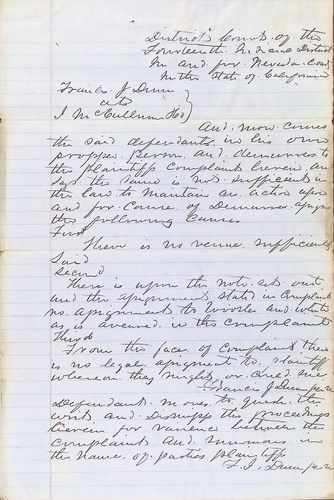 District Court of the
Fourteenth Judicial District
In and for Nevada County
In the State of California
Francis J Dunn
ats
J McCullum
And now comes
the said defendants in his own
propper person and demurrers to
the plaintiffs complaint herein and
says the same is not sufficient in
the law to maintain an action upon
and for cause of Demurrer assigns
the following causes
First
There is no venue sufficiently
Said
Second
There is upon the note set out
and the assignment stated in complaint
no assignment to Woods and White
as is averred in the complaint
Third
From the face of complaint there
is no legal assignment to plaintiff
whereon they might
Francis J Dunn
Defendant moves to quash the
writ and Dismiss the proceedings
herein for varience between the
complaint and summons in
the name of parties plaintiffs
F. J. Dunn